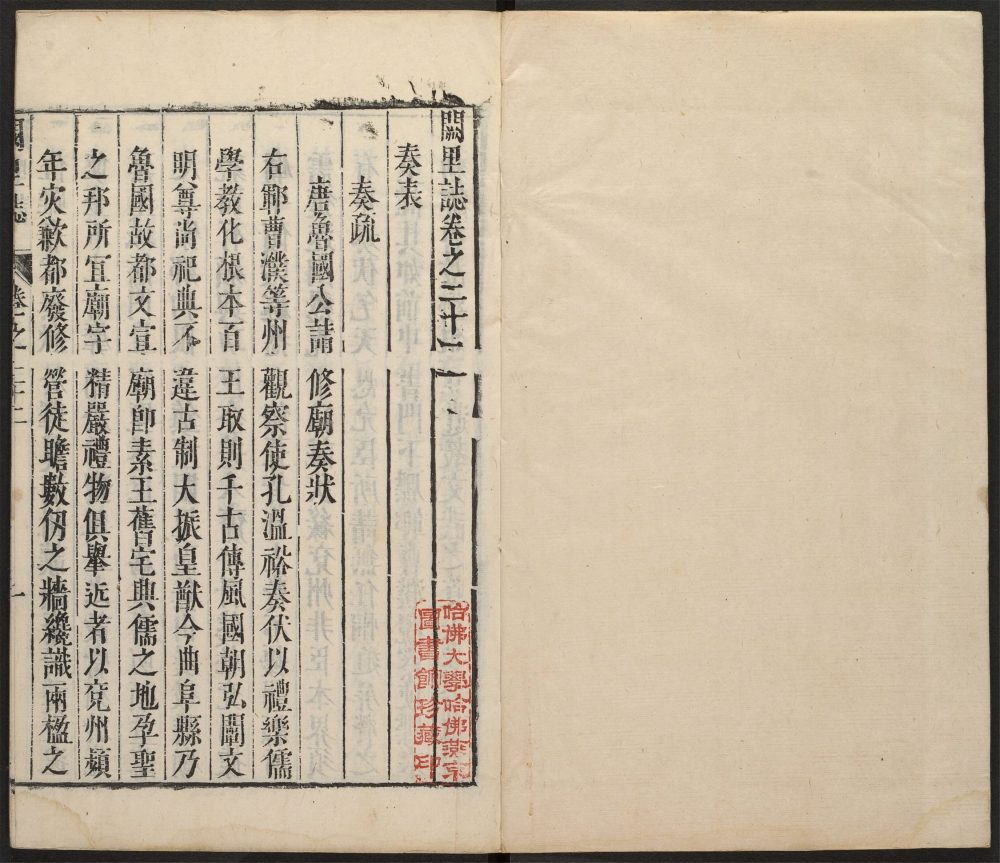 闕里誌卷之二十二
奏表
奏疏
唐魯國公請修廟奏狀
右鄆曹濮等州觀察使孔溫裕奏伏以禮樂儒
學教化根本百王取則千古傳風國朝弘闡文
明尊尚祀典不違古制大振皇猷今曲阜縣乃
魯國故都文宣廟卽素王舊宅典儒之地孕聖
之邦所宜廟宇精嚴禮物俱舉近者以兗州頻
年灾歉都廢修營徒瞻數仞之牆纔識兩楹之
闕里誌
卷之二十二
一
哈佛大學哈佛燕京
圖書館珍藏印